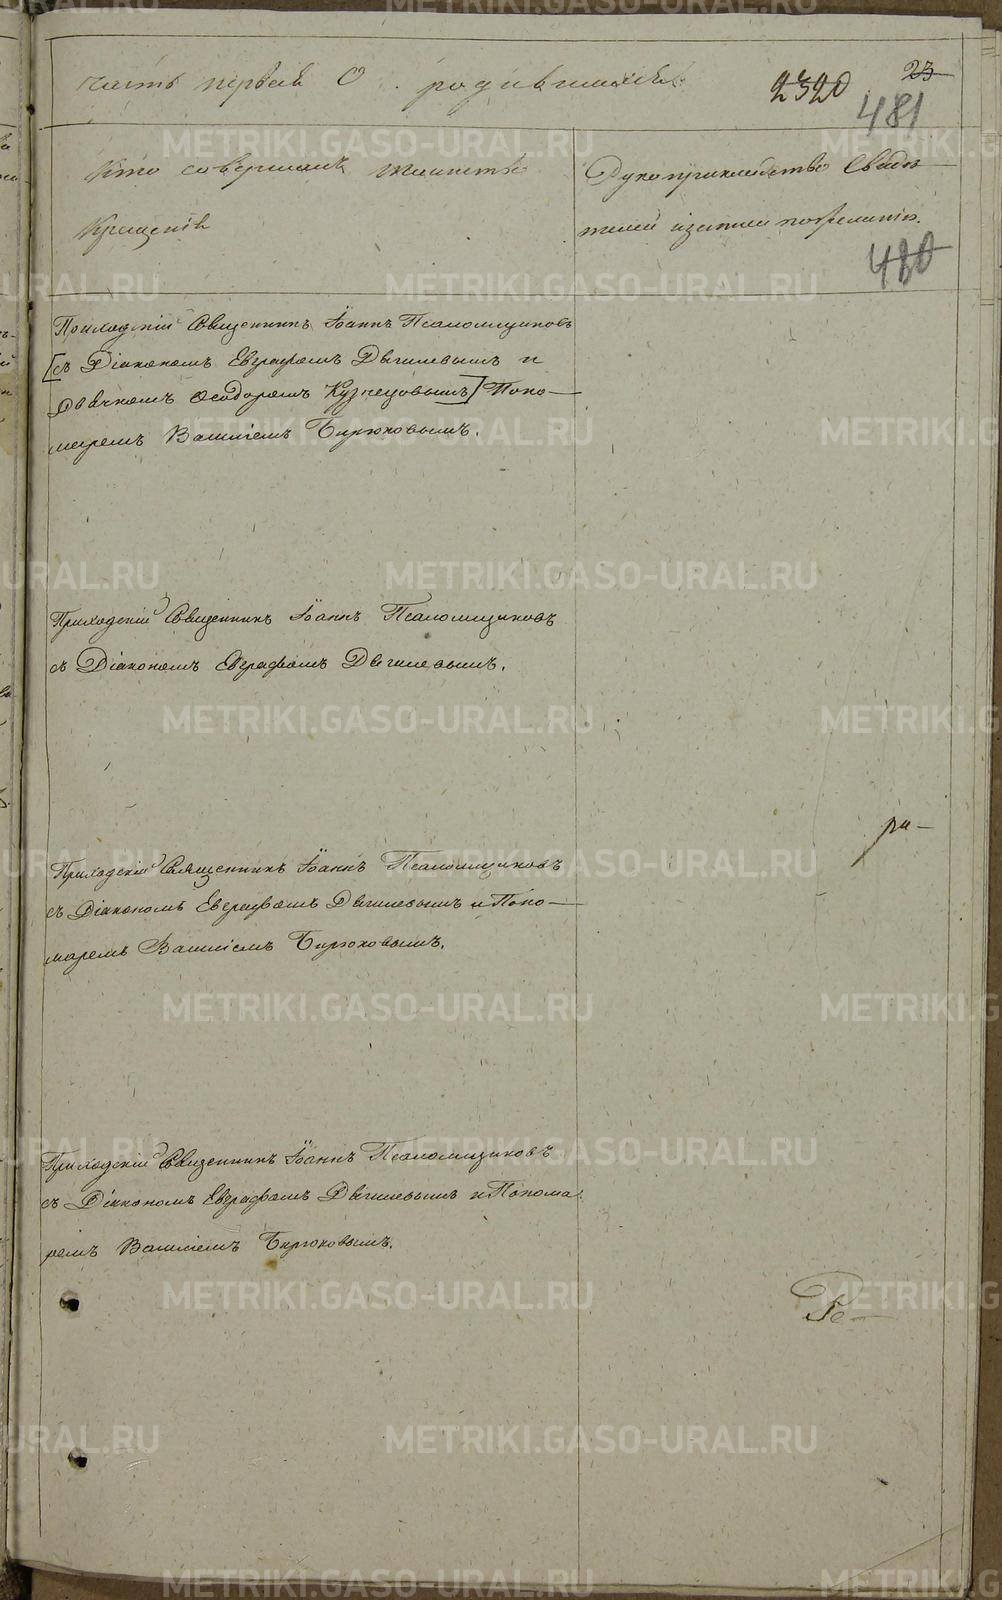 часть первая О родившихся
2320 23
481
Кто совершалъ таинство
Крещенія
Рукоприкладство Свидѣ-
телей записи по желанію.
480
Приходскій Священникъ Іоаннъ Псаломщиковъ
[съ Діакономъ Евграфомъ Дягилевымъ и
Дьячкомъ Ѳеодоромъ Кузнецовымъ] Поно-
маремъ Василіемъ Бирюковымъ.
Приходскій Священникъ Іоаннъ Псаломщиковъ
съ Діакономъ Евграфомъ Дягилевымъ.
ра-
Приходскій Священникъ Іоаннъ Псаломщиковъ
съ Діакономъ Евграфомъ Дягилевымъ и Поно-
маремъ Василіемъ Бирюковымъ.
Приходскій Священникъ Іоаннъ Псаломщиковъ
съ Діакономъ Евграфомъ Дягилевымъ и Понома
ремъ Василіемъ Бирюковымъ.
METRIKI.GASO-URAL.RU